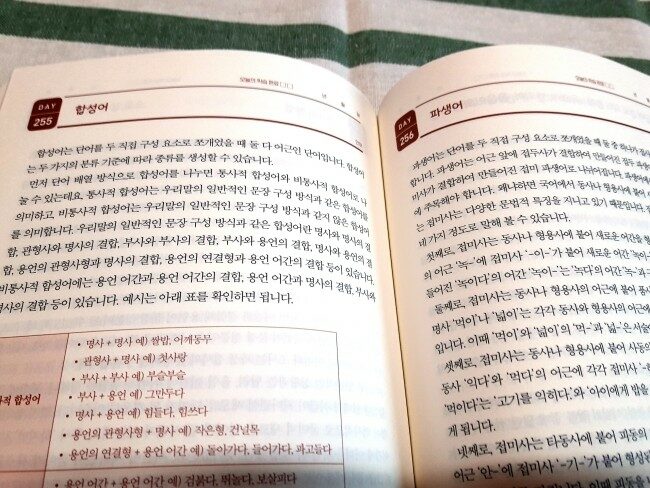 DAY
255
합성어
오늘의 학습 완료
년 월 일
합성어는 단어를 두 직접 구성 요소로 쪼개었을 때 둘 다 어근인 단어입니다. 합성어
는 두 가지의 분류 기준에 따라 종류를 생성할 수 있습니다.
먼저 단어 배열 방식으로 합성어를 나누면 통사적 합성어와 비통사적 합성어로 나
눌 수 있는데요. 통사적 합성어는 우리말의 일반적인 문장 구성 방식과 같은 합성어를
의미하고 비통사적 합성어는 우리말의 일반적인 문장 구성 방식과 같지 않은 합성어
를 의미합니다. 우리말의 일반적인 문장 구성 방식과 같은 합성어란 명사와 명사의 결
합, 관형사와 명사의 결합, 부사와 부사의 결합, 부사와 용언의 결합, 명사와 용언의 결
합, 용언의 관형사형과 명사의 결합, 용언의 연결형과 용언 어간의 결합 등이 있습니다.
비통사적 합성어에는 용언 어간과 용언 어간의 결합, 용언 어간과 명사의 결합, 부사와
명사의 결합 등이 있습니다. 예시는 아래 표를 확인하면 됩니다.
사적 합성어
• 명사 + 명사 예) 쌀밥, 어깨동무
• 관형사 + 명사 예) 첫사랑
• 부사 + 부사 예) 부슬부슬
• 부사 + 용언 예) 그만두다
• 명사 + 용언 예) 힘들다, 힘쓰다
• 용언의 관형사형 + 명사 예) 작은형, 건널목
• 용언의 연결형 + 용언 어간 예) 돌아가다, 들어가다, 파고들다
용언 어간 + 용언 어간 예) 검붉다, 뛰놀다, 보살피다
DAY
256
파생어
오늘의 학습 완료
년
파생어는 단어를 두 직접 구성 요소로 쪼개었을 때 둘 중 하나가 접사
합니다. 파생어는 어근 앞에 접두사가 결합하여 만들어진 접두 파생어
미사가 결합하여 만들어진 접미 파생어로 나뉘어집니다.
에 주목해야 합니다. 왜냐하면 국어에서 동사나 형용사에
는 접미사는 다양한 문법적 특징을 지니고 있기 때문입니다.
네 가지 정도로 말해 볼 수 있습니다.
첫째로, 접미사는 동사나 형용사에 붙어 새로운 어간을 형
의 어근 '녹-'에 접미사 '-이-'가 붙어 새로운 어간 '녹이-'
들어진 '녹이다'의 어간 '녹이-'는 '녹다'의 어간 '녹-'과 구
둘째로, 접미사는 동사나 형용사의 어근에 붙어 품사
명사 '먹이'나 '넓이'는 각각 동사와 형용사의 어근에
입니다. 이때 '먹이'와 '넓이'의 '먹-'과 '넓-'은 서술
셋째로, 접미사는 동사나 형용사에 붙어 사동의
동사 '익다'와 '먹다'의 어근에 각각 접미사
'먹이다'는 '고기를 익히다.'와 '아이에게 밥을
게 됩니다.
넷째로, 접미사는 타동사에 붙어 피동의
어근 '안-'에 접미사 '-기-'가 붙어 형성된